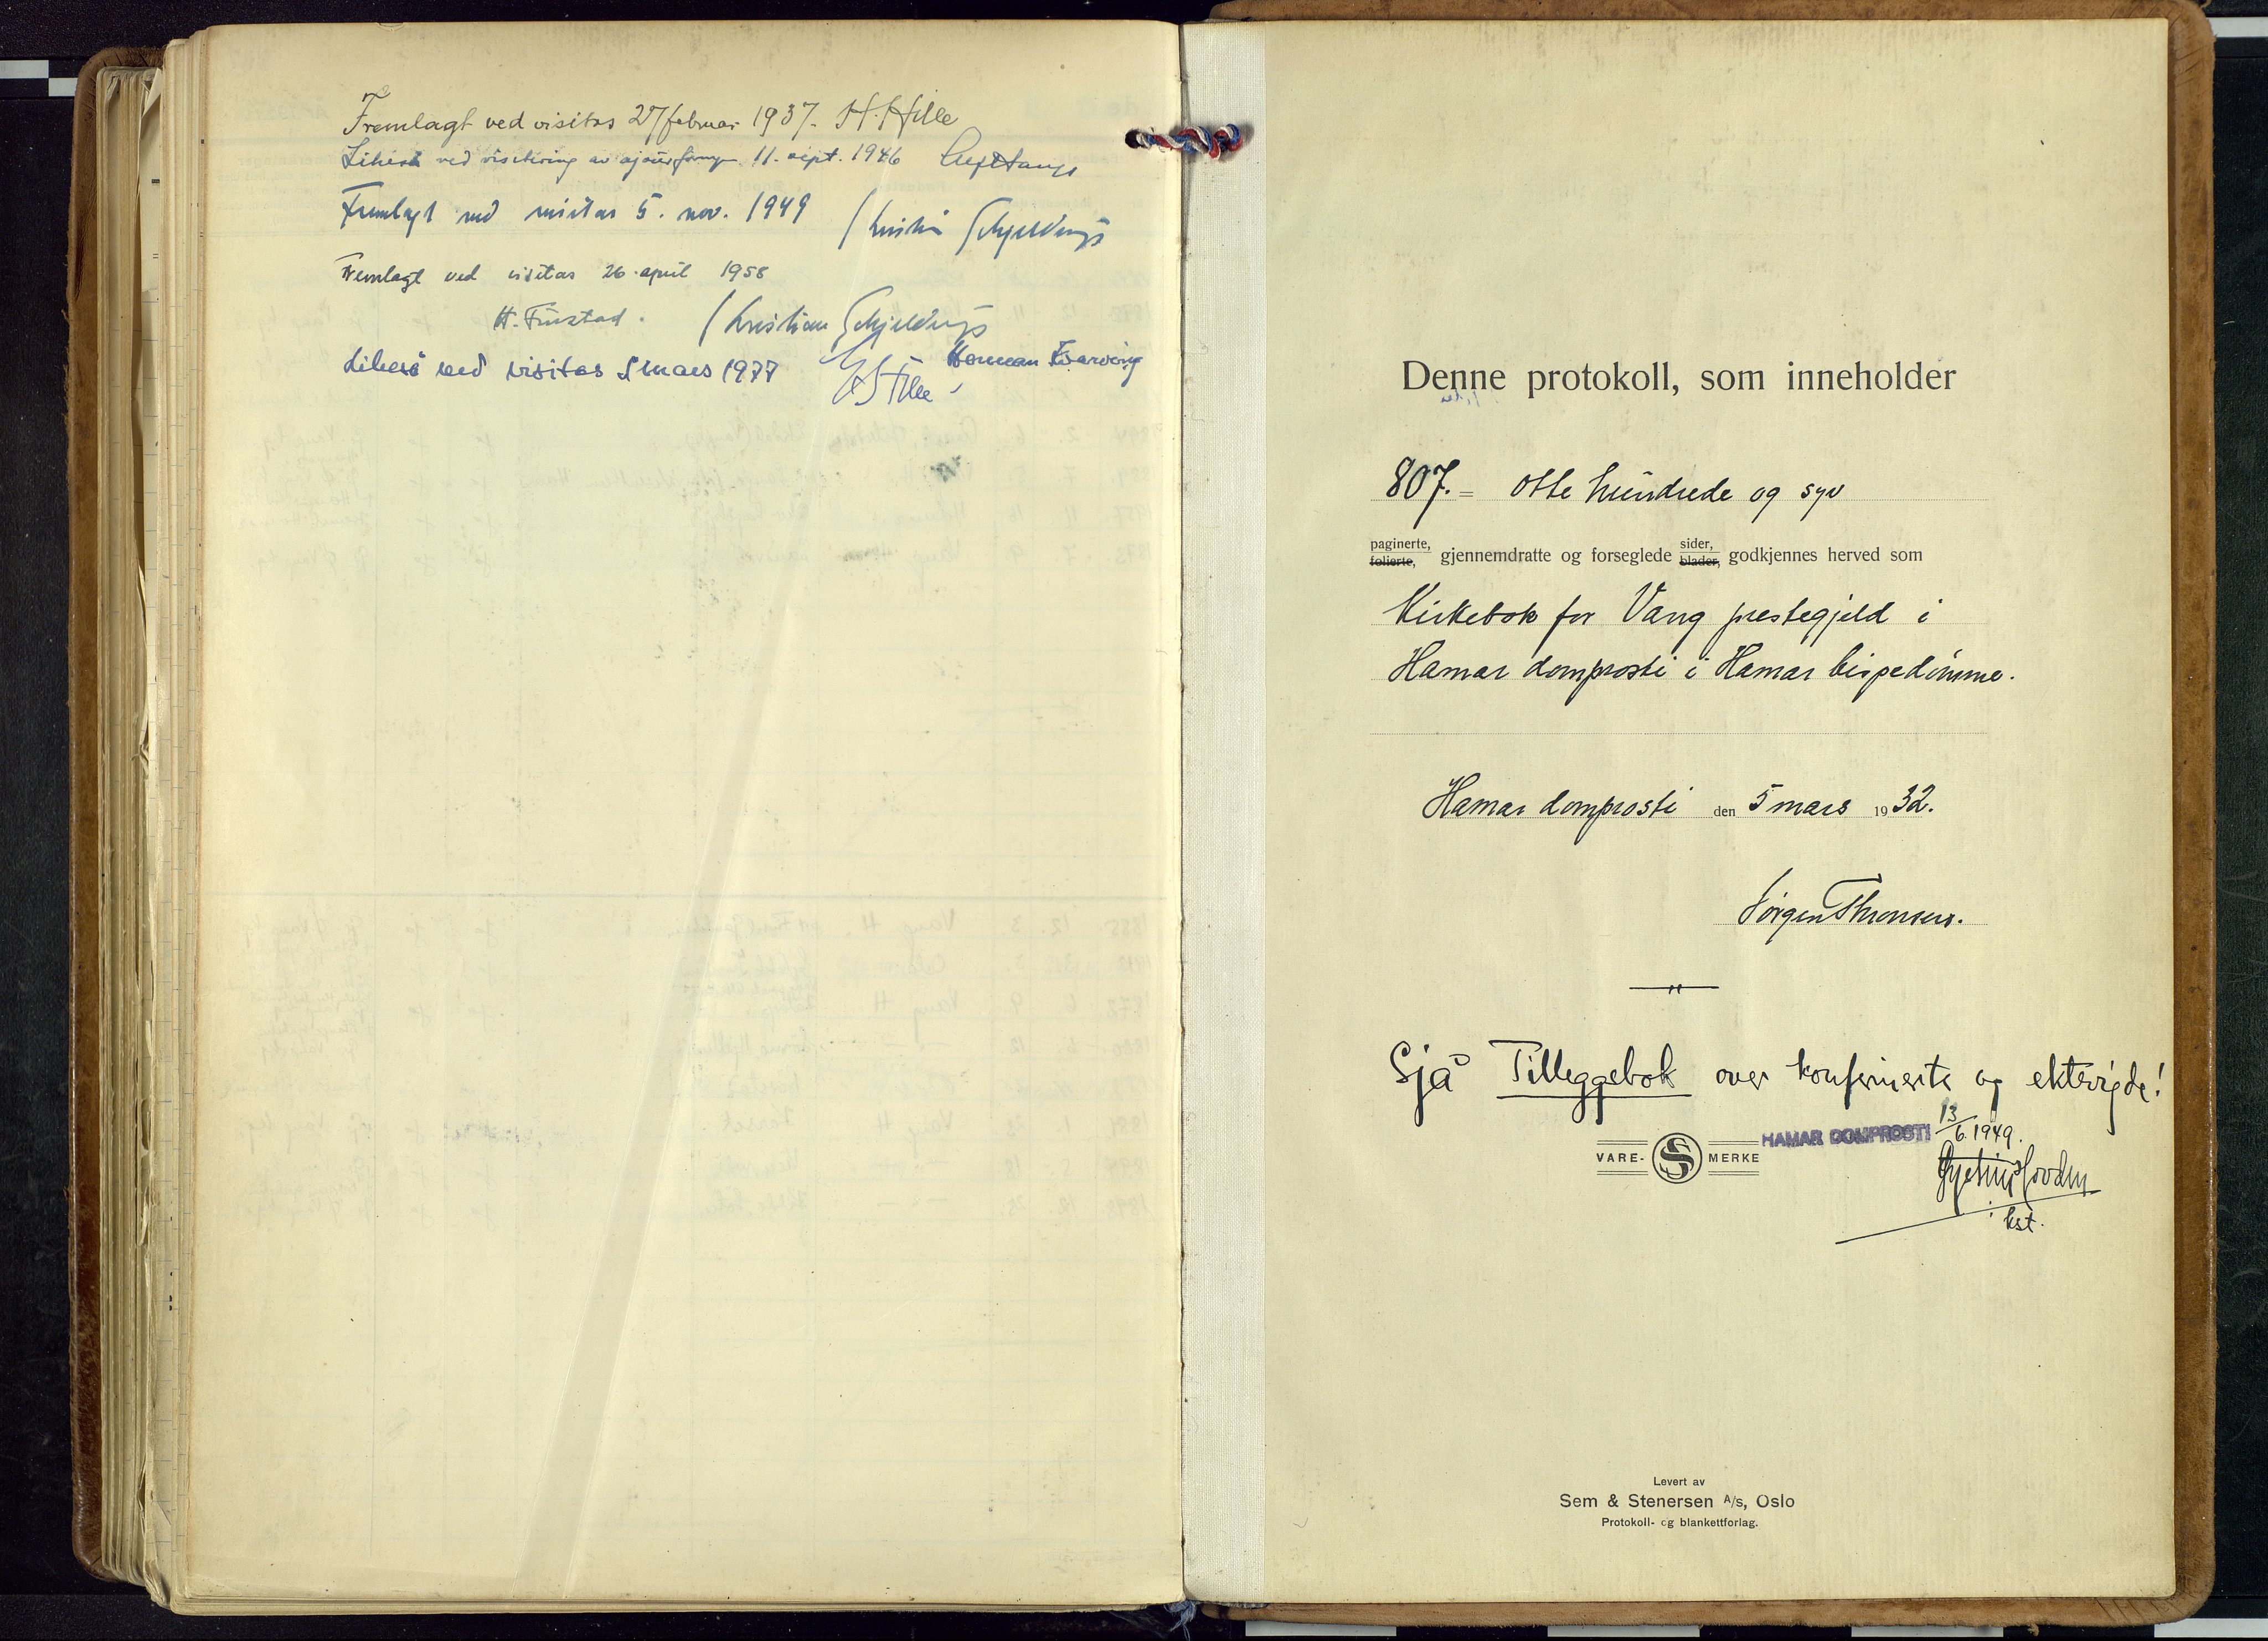 Fremlagt ved visitas 27 februar 1937. H. Hille
Likeså ved visitering av ajourføringen 11. sept. 1946
Fremlagt ved visitas 5. nov. 1949 Kristian Schjelderup
Fremlagt ved visitas 26. april 1958
H. Finstad. Kristian Schjelderup
Likeså ved visitas 5 mars 1977 G Hille Herman Kvarving
Denne protokoll, som inneholder
807. = otte hundrede og syv
paginerte, sider,
folierte, gjennemdratte og forseglede blader, godkjennes herved som
Kirkebok for Vang prestegjeld i
Hamar domprosti i Hamar bispedømme.
Hamar domprosti den 5 mars 1932.
Jørgen Thronsen.
Sjå Tilleggsbok over konfirmerte og ektevigde!
HAMAR DOMPROSTI 13/6. 1949.
VARE- S MERKE
kst.
Levert av
Sem & Stenersen A/s, Oslo
Protokoll- og blankettforlag.